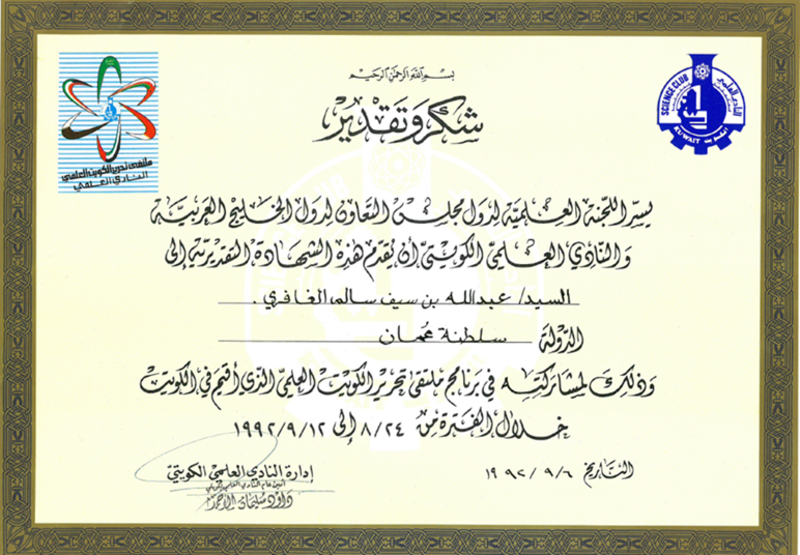 بسم الله الرحمن الرحيم
شكر وتقدير
SCIENCE CLUB
النادي العلمي
KUWAIT الكويت
ملتقى تحرير الكويت العلمي
النادي العلمي
يسر اللجنة العلمية لدول مجلس التعاون لدول الخليج العربية
والنادي العلمي الكويتي أن يقدم هذه الشهادة التقديرية إلى
السيد/ عبدالله بن سيف سالم الغافري.
الدولة سلطنة عمان
وذلك لمشاركته في برنامج ملتقى تحرير الكويت العلمي الذي أقيم في الكويت
خلال الفترة من ٨/٢٤ إلى ١٩٩٢/٩/١٢
التاريخ ١٩٩٢/٩/٦
إدارة النادي العلمي الكويتي
أمين عام النادي العلمي الكويتي
داود سليمان الأحمد